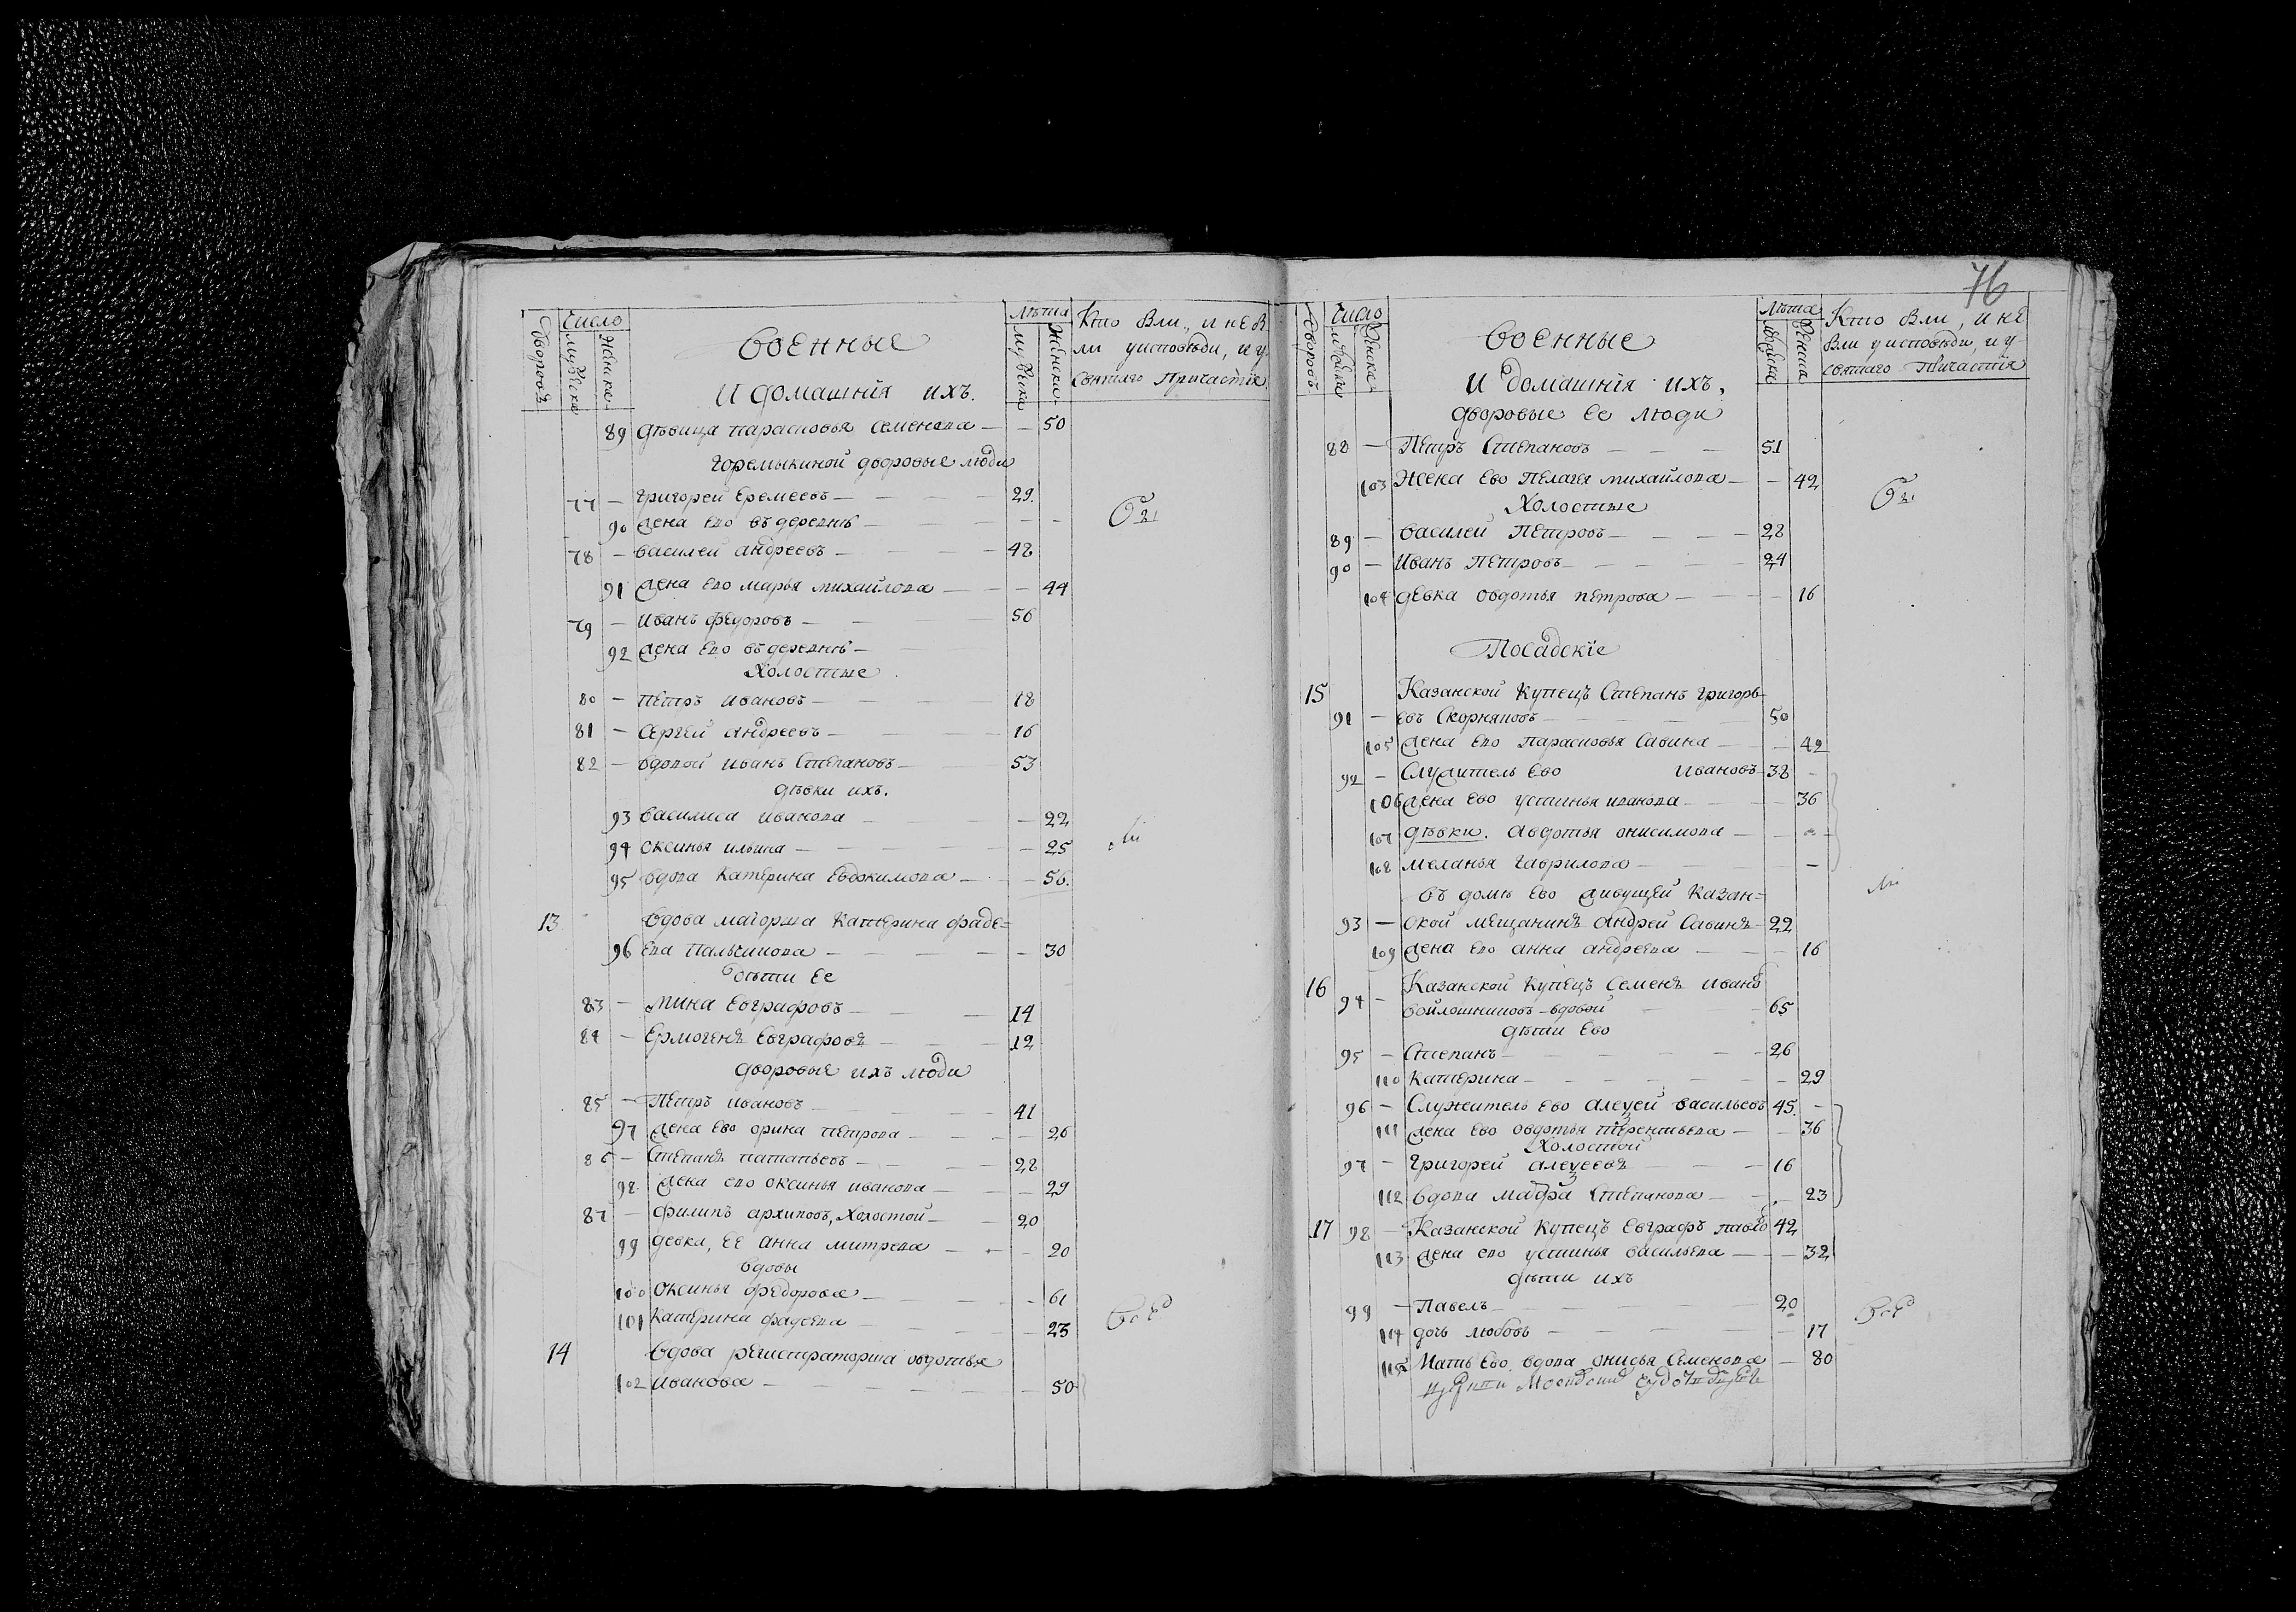 Дворовъ
Число
мужеска
женска
Военные
И домашнія ихъ.
Лѣта
мужска
женска
Кто Были, и не Бы
ли у исповѣди, и у
Святаго Причастія
89 дѣвица парасковья семенова — — 50
горемыкиной дворовые люди
77 — григорей Еремеевъ — 29.
90 жена Ево въ деревнѣ — — —
78 — василей андреевъ — 48
91 жена Ево марья михайлова — — 44
79 — иванъ федоровъ — 56
92 жена Ево въ деревнѣ —
Холостые
80 — петръ ивановъ — 18
81 — Сергей андреевъ — 16
82 — вдовой иванъ Степановъ — 53
дѣвки ихъ.
93 василиса иванова — — 22
94 оксинья ильина — — 25
95 вдова Катерина Евдокимова — — 56.
13 Вдова маіорша Катерина фаде=
96 Ева Пальчикова — — 30
дѣти Ее
83 — мина Евграфовъ — 14
84 — Ермогенъ Евграфовъ — 12
дворовые ихъ люди
85 — Петръ ивановъ — 41
97 жена Ево орина петрова — — 26
86 — Степанъ патапьевъ — 28
98 жена ево оксинья иванова — — 29
87 — филипъ архиповъ, Холостой — 20
99 девка, ЕЕ анна митрева — — 20
вдовы
100 Оксинья федорова — — 61
101 Катерина фадеева — — 23
14 Вдова регистраторша овдотья
102 иванова — — 50
76
Дворовъ
Число
мужска
женска
Военные
И домашнія ихъ.
Лѣта
мужска
женска
Кто Были, и не
Были у исповѣди, и у
святаго Причастія
дворовые Ее люди
88 — Петръ Степановъ — 51
103 Жена Ево Пелагея михайлова — — 42
Холостые
89 — василей Петровъ — 28
90 — Иванъ Петровъ — 24
104 девка овдотья петрова — — 16
Посадскіе
15 Казанской Купецъ Степанъ григорь=
91 — евъ Скорняковъ — 50
105 жена Ево Парасковья Савина — — 42
92 — Служитель Ево Ивановъ — 38 —
106 жена Ево устинья иванова — — 36
107 дѣвки. Авдотья онисимова — —
108 меланья гаврилова — —
въ домѣ Ево живущей Казан=
93 — ской мещанинъ Андрей Савинъ — 22
109 жена Ево анна андреева — — 16
16 Казанской Купецъ Семенъ иванов
94 — войлошниковъ — вдовой — 65
дѣти Ево
95 — Степанъ — 26
110 Катерина — — 29
96 — Служитель Ево алексей васильевъ 45. —
111 жена Ево овдотья терентьева — — 36
Холостой
97 — григорей алексеевъ — 16
112 вдова мавра Степанова — — 23
17 98 — Казанской Купецъ Евграфъ павло 42
113 жена ево устинья васильева — — 32
дѣти ихъ
99 — Павелъ — 20
114 дочь любовь — — 17
115 Мать Ево вдова онисья Семенова — 80